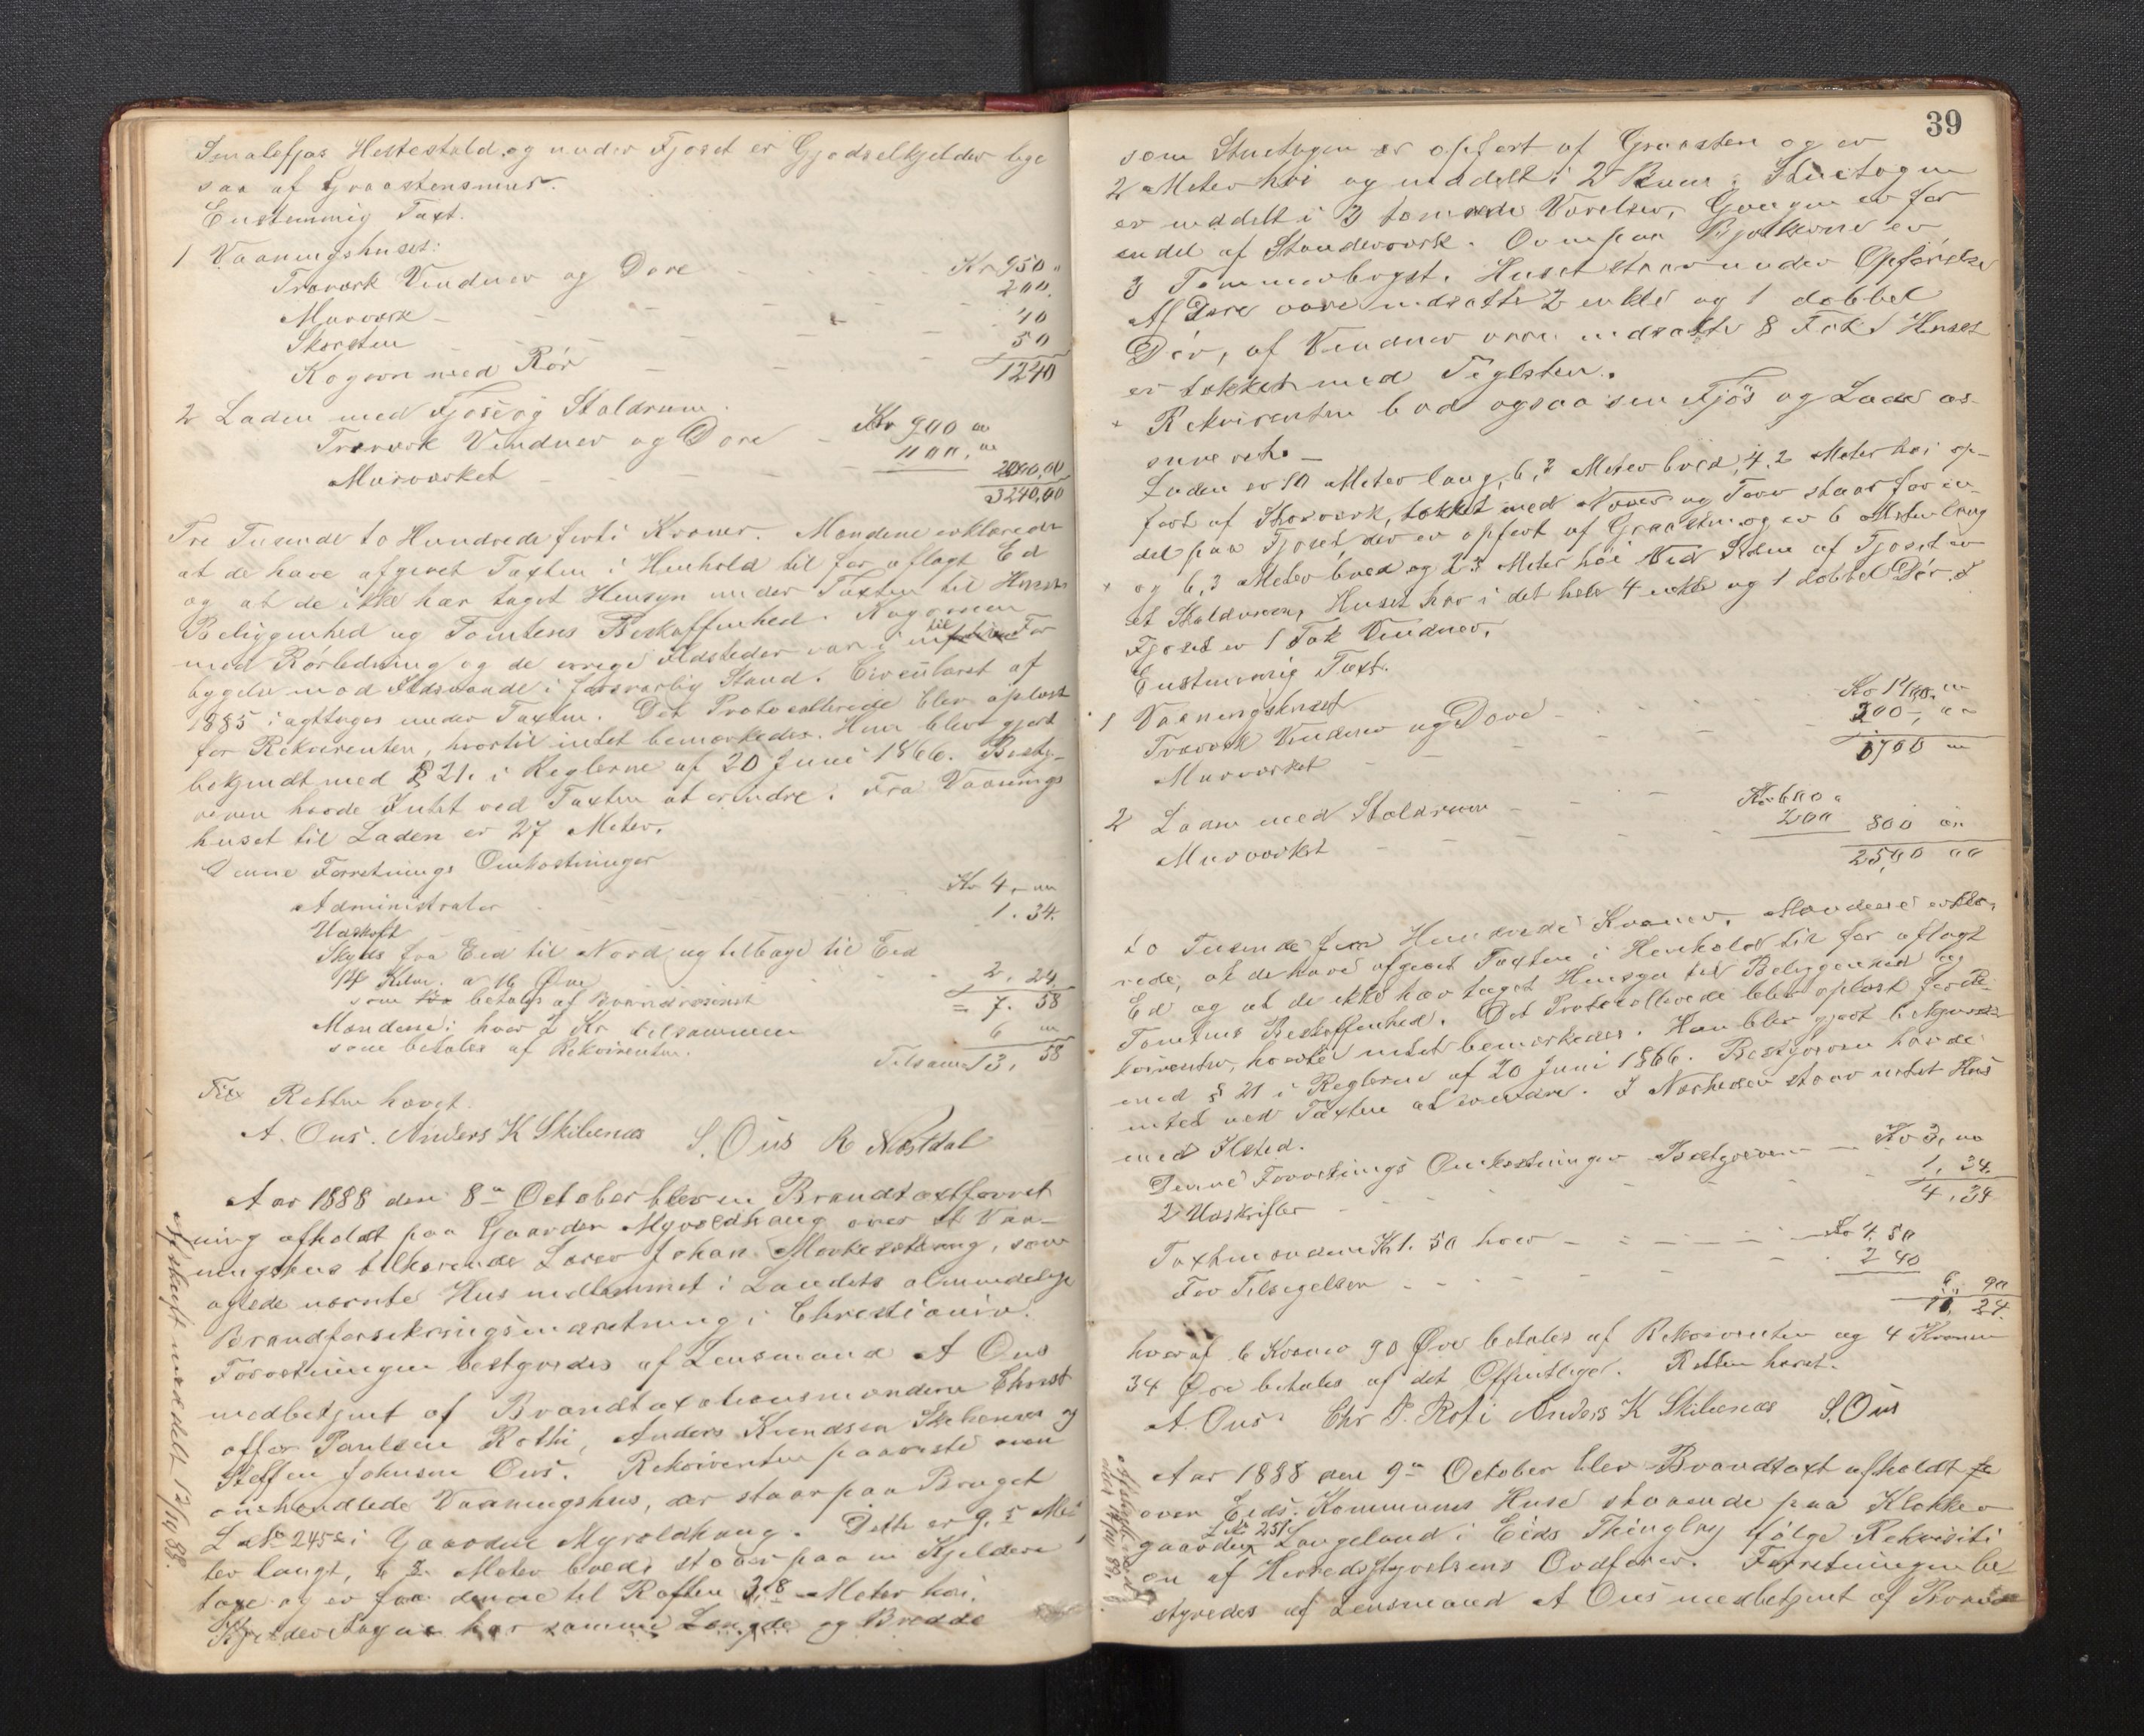 Smalefjøs Hestestald, og under Fjøset er Gjødselkjelder lige
saa af Graastensmur.
Enstemmig Taxt.
1 Vaaningshuset:
Træværk Vinduer og Døre Kr 950 "
Murværk 200.
Skorsten 40
Kogovn med Rør 50
1240
2 Laden med Fjøs og Staldrum.
Træværk Vinduer og Døre Kr 900 "
Murværket 1100, "
2000,00
3240,00
Tre Tusende to Hundrede forti Kroner. Mændene erklærede
at de have afgivet Taxten i Henhold til før aflagt Ed
og at de ikke har taget Hensyn under Taxten til Husets
Beliggenhed og Tomtens Beskaffenhed. Kogovnen
med Rørledning og de øvrige Ildsteder var i til For
bygelse mod Ildsvaade i forsvarlig Stand. Circulæret af
1885 iagttages under Taxten. Det Protocollerede blev oplæst
for Rekvirenten, hvortil intet bemærkedes. Han blev gjort
bekjendt med § 21. i Reglerne af 20 Juni 1866. Besty-
reren havde Intet ved Taxten at erindre. Fra Vaanings
huset til Laden er 27 Meter.
Denne Forretnings Omkostninger
Administrator Kr 4, "
Udskrift 1. 34.
Skyds fra Eid til Nord og tilbage til Eid
14 Kilm. a 16 Øre 2, 24
som betales af Brandvæsenet = 7. 58
Mændene: hver 2 Kr tilsammen 6 "
som betales af Rekvirenten. Tilsam 13, 58
Retten hævet.
A. Ous. Anders K Skibenes S. Ous R Nøstdal
Aar 1888 den 8de October blev en Brandtaxtforret
ning afholdt paa Gaarden Myroldhaug over et Vaa-
ningshus tilhørende Lærer Johan , som
agtede nævnte Hus indlemmet i Landets almindelige
Brandforsikringsindretning i Christiania.
Forretningen bestyredes af Lensmand A Ous
medbetjent af Brandtaxationsmændene Christ
offer Paulsen Rothi, Anders Knudsen Skibenes og
Steffen Johnsen Ous. Rekvirenten paaviste oven
omhandlede Vaaningshus, der staar paa Bruget
L No 245 i Gaarden Myroldhaug. Dette er 9.5 Me
ter langt, 6 Meter bred, staaer paa en Kjelder
tage og er fra denne til Raften 3,8 Meter høi.
Kjelderetagen har samme Længde og Bredde
Afskrift meddelt 12/10 88.
39
som Stuetagen er opført af Graasten og er
2 Meter høi og inddelt i 2 Rum. Stuetagen
er inddelt i 3 tømrede Værelser, Gangen er for
endel af Standerværk. Ovenpaa Bjelkerne er
3 Tømmerbygst. Huset staar under Opførelse
Af Døre vare indsatte 2 enkle og 1 dobbel
Dør, af Vinduer vare indsatte 8 Fak. Huset
er tækket med Teglsten.
Rekvirenten bad ogsaa sin Fjøs og Lade as-
sureret. –
Laden er 10 Meter lang, 6,3 Meter bred, 4,2 Meter høi op-
ført af Skorværk, tækket med Never og Torv staar for en
del paa Fjøset, der er opført af Graasten og er 6 Meter lang
og 6,3 Meter bred og 2,3 Meter høi. Ved Siden af Fjøset er
et Staldrum, Huset har i det hele 4 enkle og 1 dobbel Dør. I
Fjøset er 1 Fak Vinduer,
Enstemmig Taxt.
1 Vaaningshuset
Træværk Vinduer og Døre Kr 1400 "
Murværket 300, "
1700 "
2 Laden med Staldrum Kr 600 "
Murværket 200 800 "
2500 00
to Tusinde fem Hundrede Kroner. Mændene erklæ-
rede, at de have afgivet Taxten i Henhold til før aflagt
Ed og at de ikke har taget Hensyn til Beliggenhed og
Tomtens Beskaffenhed. Det Protocollerede blev oplæst for Re-
kvirenten, hvortil intet bemærkedes. Han blev gjort bekjendt
med § 21 i Reglerne af 20 Juni 1866. Bestyreren havde
intet ved Taxten at erindre. I Nærheden staar intet Hus
med Ilsted.
Denne Forretnings Omkostninger Bestyreren Kr 3, "
2 Udskrifter 1, 34.
4, 34
Taxtmændene Kr 1. 50 hver Kr 4. 50
For Tilsigelsen 2 40
6 90
11, 24.
hvoraf 6 Kroner 90 Øre betales af Rekvirenten og 4 Kroner
34 Øre betales af det Offentlige. Retten hævet.
A. Ous. Chr P. Roti Anders K Skibenes S. Ous
Aar 1888 den 9de October blev Brandtaxt afholdt
over Eids Kommunes Huse staaende paa Klokker
L No 251
gaarden Langeland i Eids Thinglag ifølge Rekvisiti
on af Herredsstyrelsens Ordfører. Forretningen be
styredes af Lensmand A Ous medbetjent af Brand